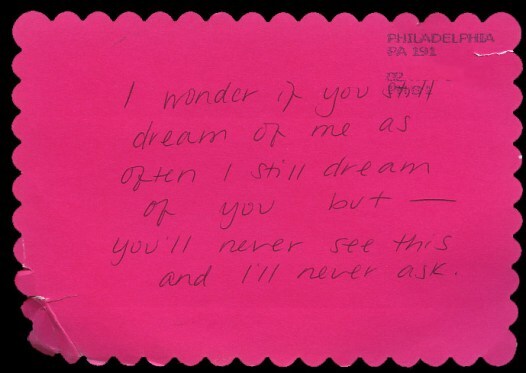 PHILADELPHIA
PA 191
I wonder if you still
dream of me as
often I still dream
of you but —
you'll never see this
and I'll never ask.